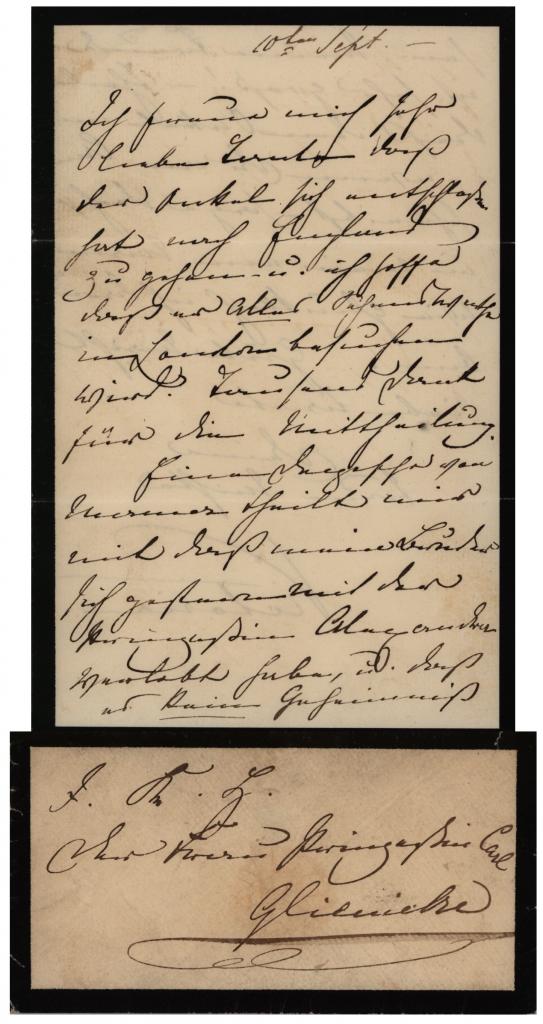 10ten Sept. —
Ich freue mich sehr
liebe Tante daß
der Onkel sich entschloßen
hat nach England
zu gehen - u. ich hoffe
daß er Alles Sehenswerthe
in London besuchen
wird. Tausend Dank
für die Mittheilung.
Eine Depesche von
Mama theilt mir
mit daß mein Bruder
sich gestern mit der
Prinzeßin Alexandra
verlobt habe, u. daß
es kein Geheimniß
I. K. H.
der Frau Prinzeßin Carl
Glienicke